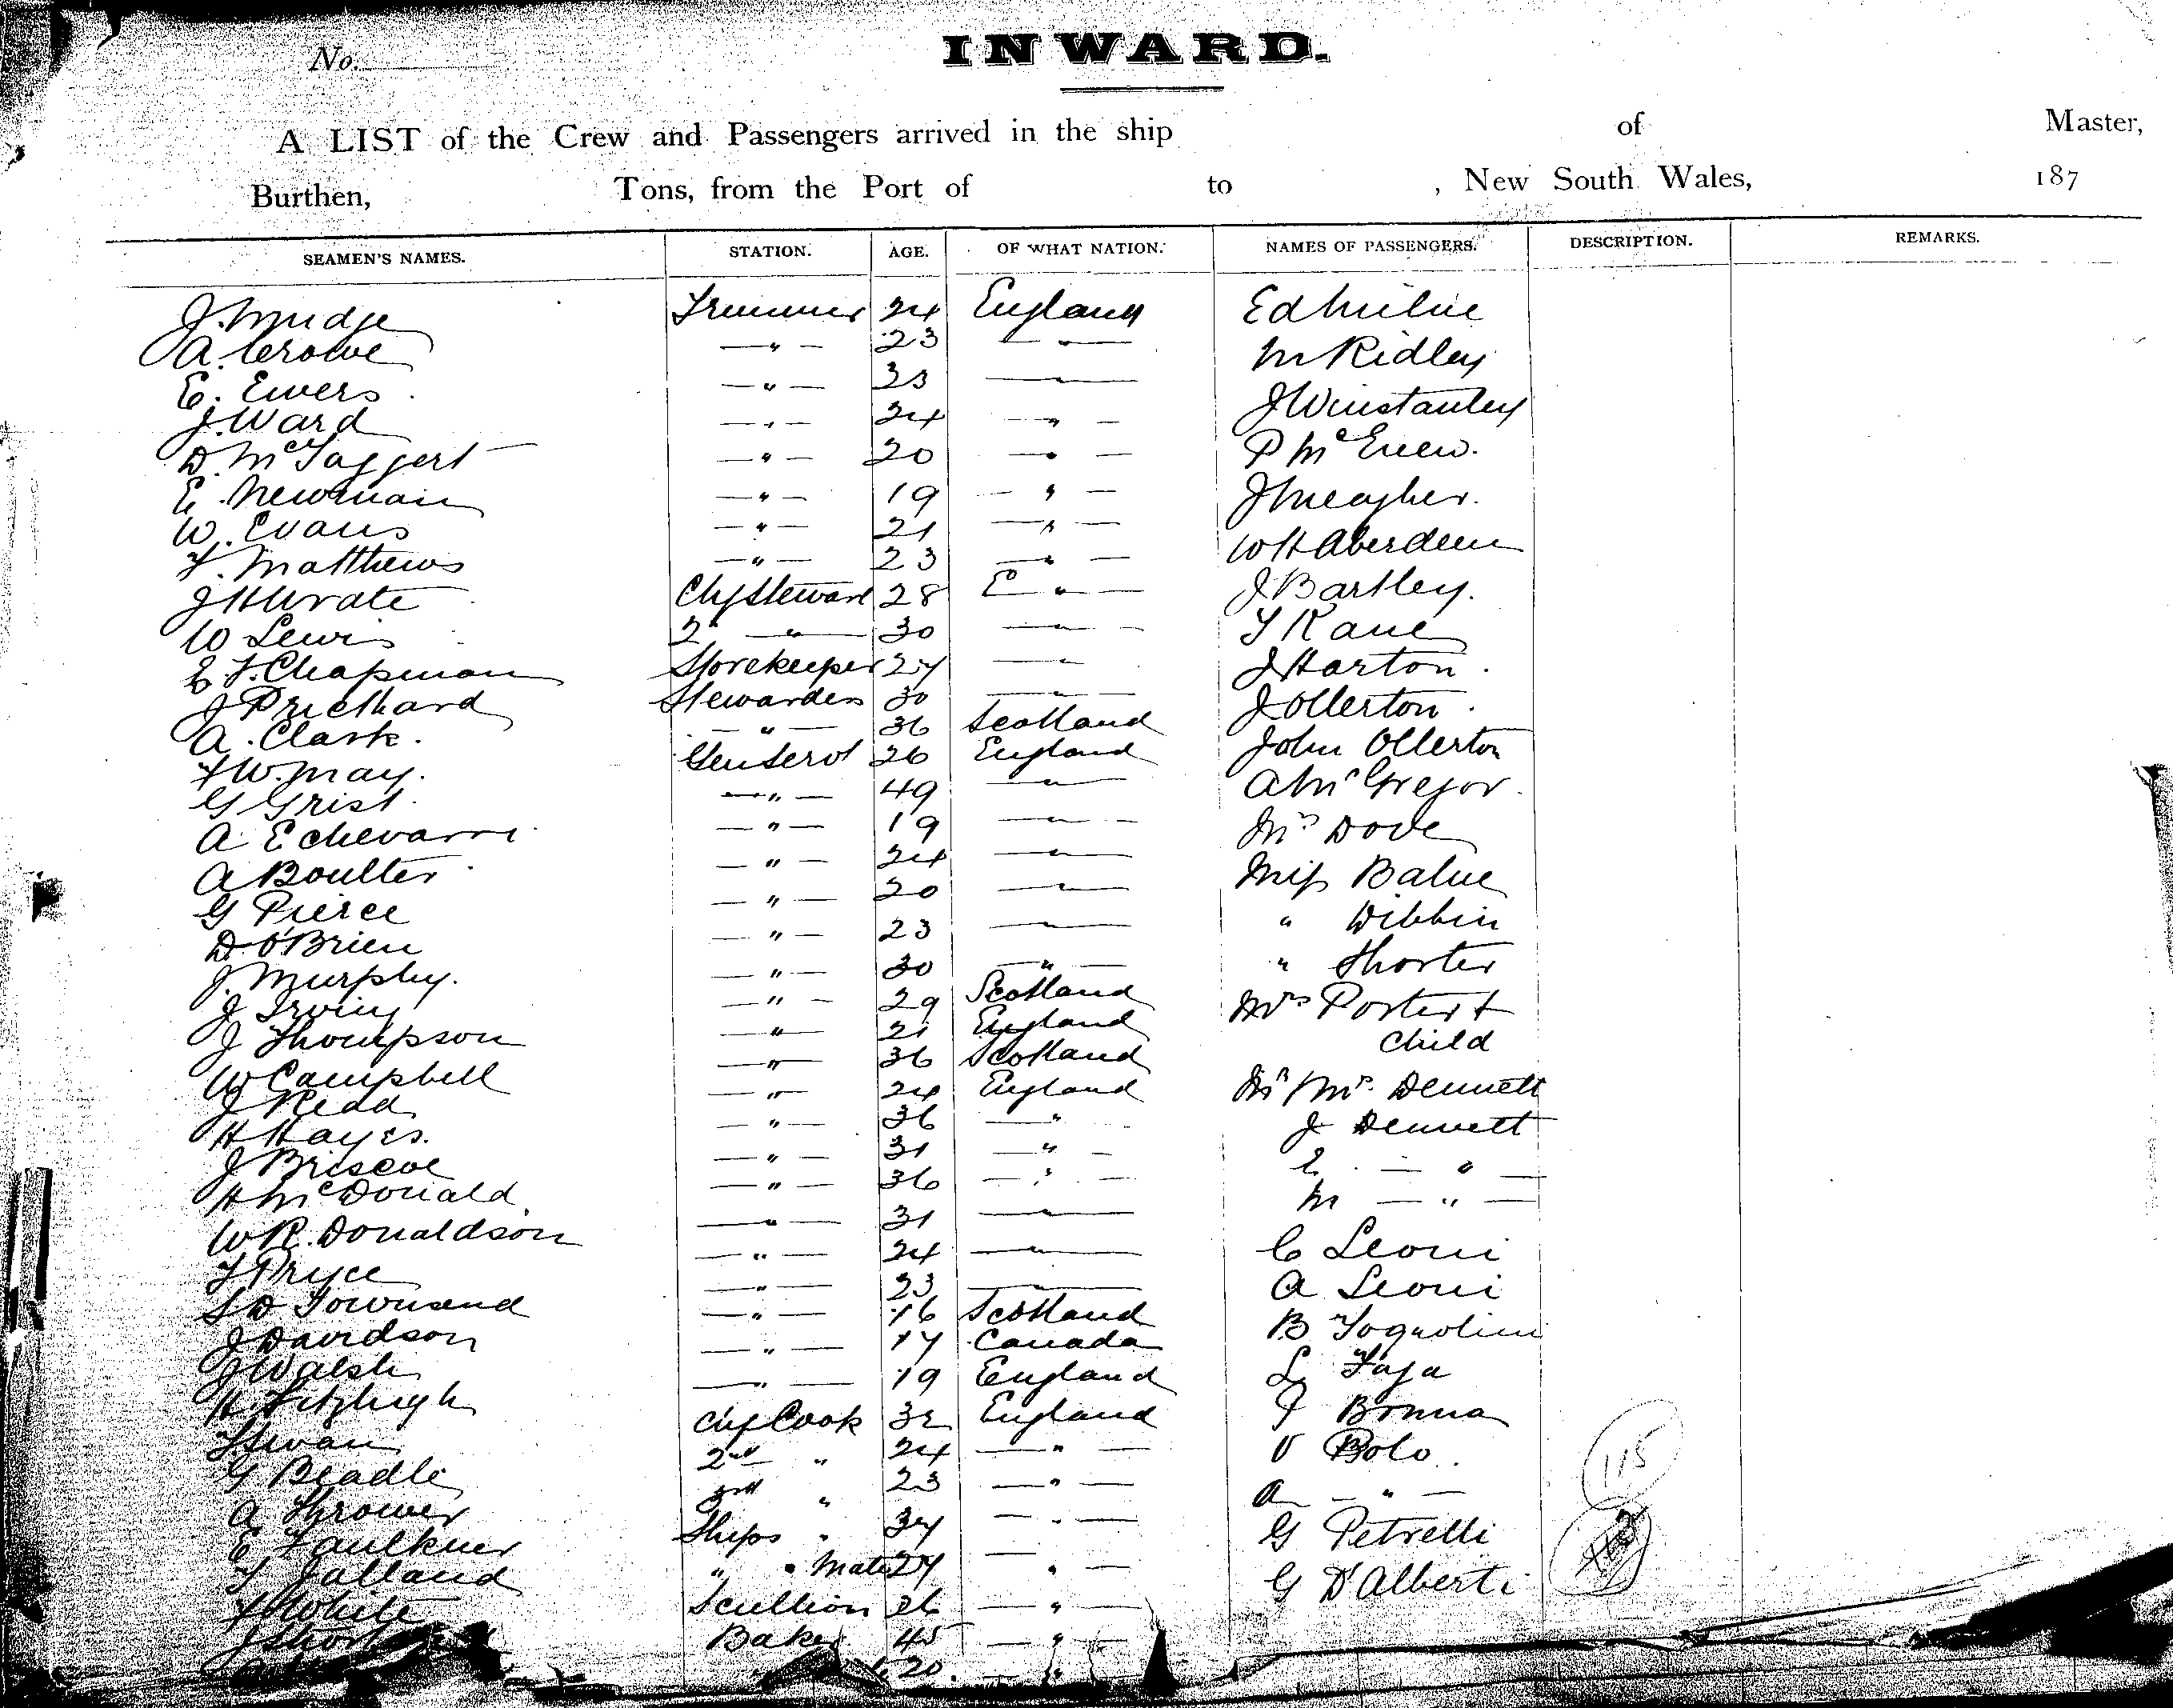 No.
INWARD.
A LIST of the Crew and Passengers arrived in the ship of Master,
Burthen, Tons, from the Port of to , New South Wales, 187
SEAMEN'S NAMES. STATION. AGE. OF WHAT NATION. NAMES OF PASSENGERS. DESCRIPTION. REMARKS.
J. Mudge Trimmer 24 England Ed Milne
A. Crowe — " — 23 — " — M Ridley
E. Ewers — " — 33 — " — J Winstanley
J. Ward — " — 24 — " — P McEwew.
D. McTaggert — " — 20 — " — J Meagher.
E. Newman — " — 19 — " — W H Aberdeen
W. Evans — " — 21 — " — J Bartley.
F. Matthews — " — 23 — " — T Kane
J H Wrate Chf Steward 28 E " — J Harton.
W Lewis 2 — " — 30 — " — J Ollerton.
E. F. Chapman Storekeeper 27 — " — John Ollerton
J Pritchard Stewardess 30 — " — A McGregor.
A. Clark. — " — 36 Scotland Mrs Dove
F W. May. Gen Servt 26 England Miss Balue
G Grist. — " — 49 — " — " Dibbin
A Echevarri — " — 19 — " — " Shorter
A Boulter — " — 24 — " — Mrs Porter +
G Pierce — " — 20 — " — Child
D. O'Brien — " — 23 — " — Mr / Mrs. Dennett
J. Murphy. — " — 30 — " — J Dennett
J Irving — " — 29 Scotland E. — " —
J Thompson — " — 21 England M — " —
W Campbell — " — 36 Scotland C Leoni
J Redd — " — 24 England A Leoni
H Hayes. — " — 36 — " — B Tognolini
J Briscoe — " — 31 — " — L Faja
H McDonald. — " — 36 — " — Bonna
W R. Donaldson — " — 31 — " — V Bolo.
T Pryce — " — 24 — " — A — " —
S D Townsend — " — 23 — " — G Petrelli
J Davidson — " — 16 Scotland G D'Alberti
J Walsh — " — 17 Canada
H. Fitzhugh — " — 19 England
T Swan Chf Cook 32 England
G Beadle 2nd " 24 — " —
A Thrower 3rd " 23 — " —
E Faulkner Ships " 37 — " —
T Jalland " " Mate 27 "
F White Scullion 26 — " —
J Short Baker 45 — " —
" 20. — " —
115